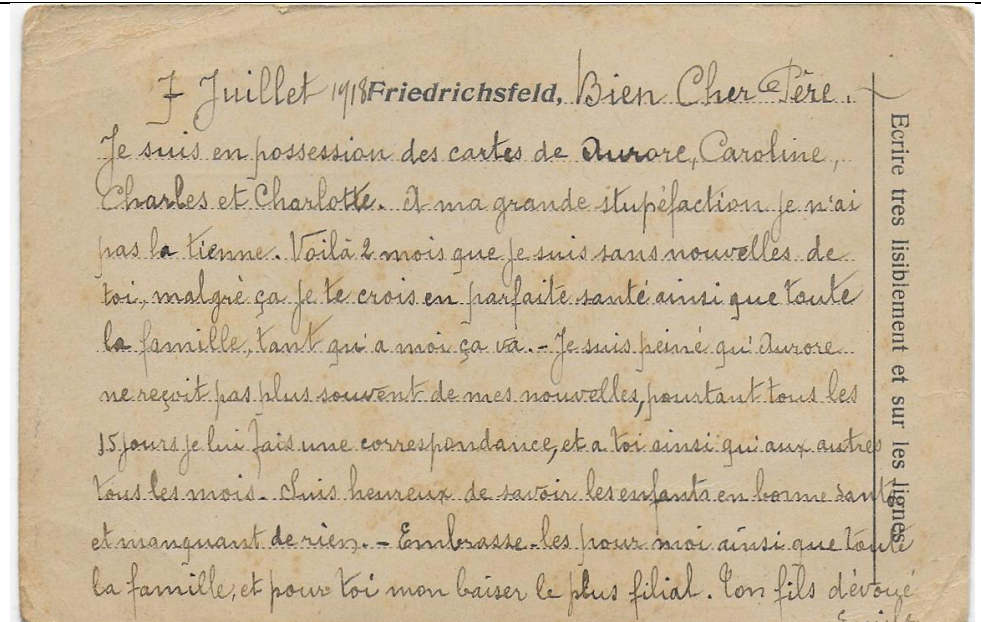 7 Juillet 1918 Friedrichsfeld, Bien Cher Père.
Je suis en possession des cartes de Aurore, Caroline,
Charles et Charlotte. A ma grande stupéfaction je n'ai
pas la tienne. Voilà 2 mois que je suis sans nouvelles de
toi, malgré ça je te crois en parfaite santé ainsi que toute
la famille, tant qu'a moi ça va. - Je suis peiné qu'Aurore
ne reçoit pas plus souvent de mes nouvelles, pourtant tous les
15 jours je lui fais une correspondance, et a toi ainsi qu'aux autres
tous les mois. Suis heureux de savoir les enfants en bonne santé
et manquant de rien. - Embrasse-les pour moi ainsi que toute
la famille, et pour toi mon baiser le plus filial. Ton fils dévoué
Ecrire très lisiblement et sur les lignes